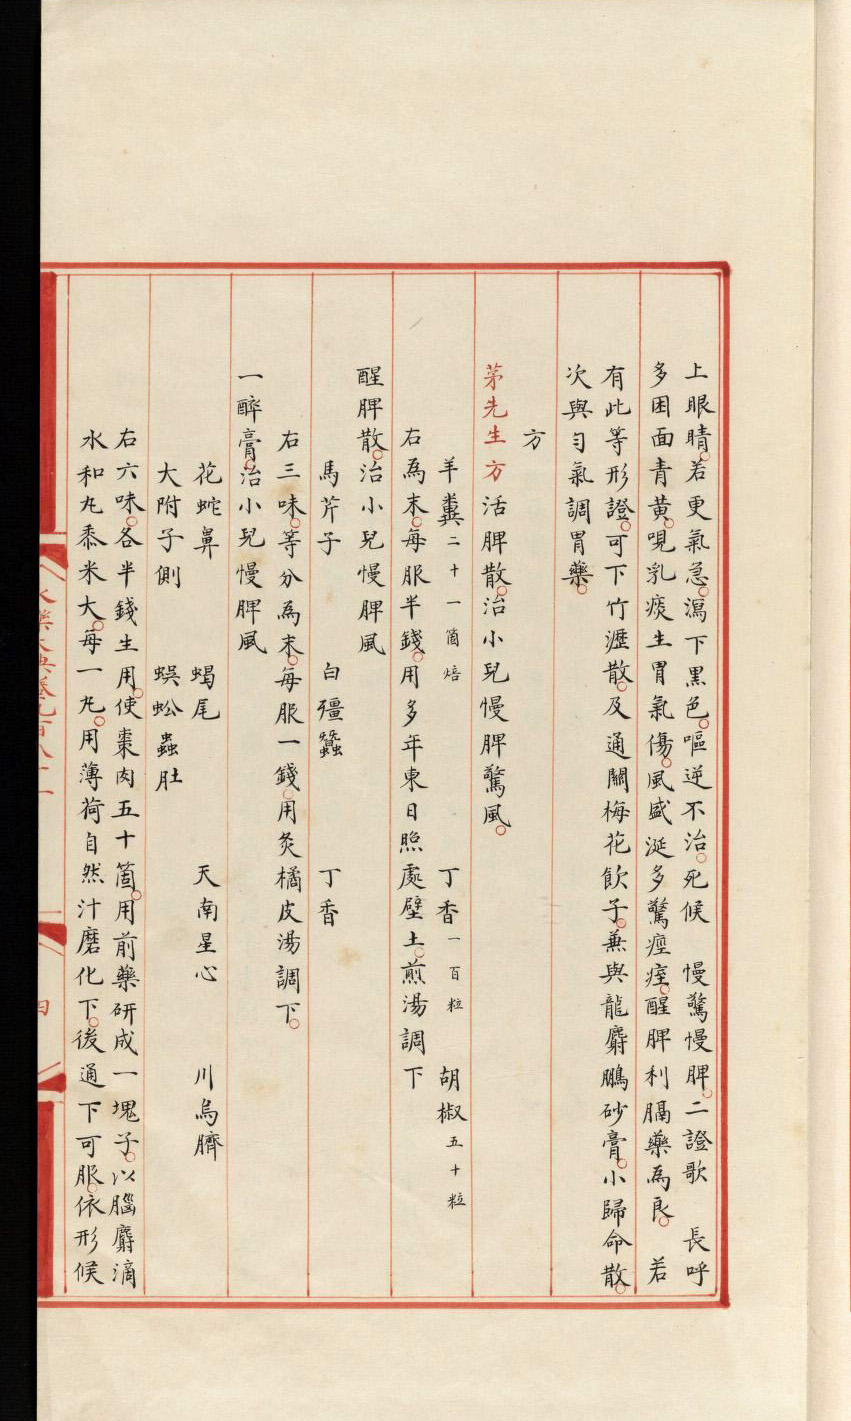 上眼睛。若更氣急。瀉下黑色。嘔逆不治。死候　慢驚慢脾。二證歌　長呼
多困面青黃。哯乳痰生胃氣傷。風盛涎多驚瘂瘂。醒脾利膈藥為良。　若
有此等形證。可下竹瀝散。及通關梅花飲子。兼與龍麝鵬砂膏。小歸命散。
次與勻氣調胃藥。
方
茅先生方活脾散。治小兒慢脾驚風。
羊糞二十一箇焙　丁香一百粒　胡椒五十粒
右為末。每服半錢。用多年東日照處壁土。煎湯調下
醒脾散。治小兒慢脾風
馬芹子　白殭蠶　丁香
右三味。等分為末。每服一錢。用炙橘皮湯調下。
一醉膏。治小兒慢脾風
花蛇鼻　蝎尾　天南星心　川烏臍
大附子側　蜈蚣蟲肚
右六味。各半錢生用。使棗肉五十箇。用前藥研成一塊子。以腦麝滴
水和丸黍米大。每一丸。用薄荷自然汁磨化下。後通下可服。依形候
永樂大典卷九百八十一
四